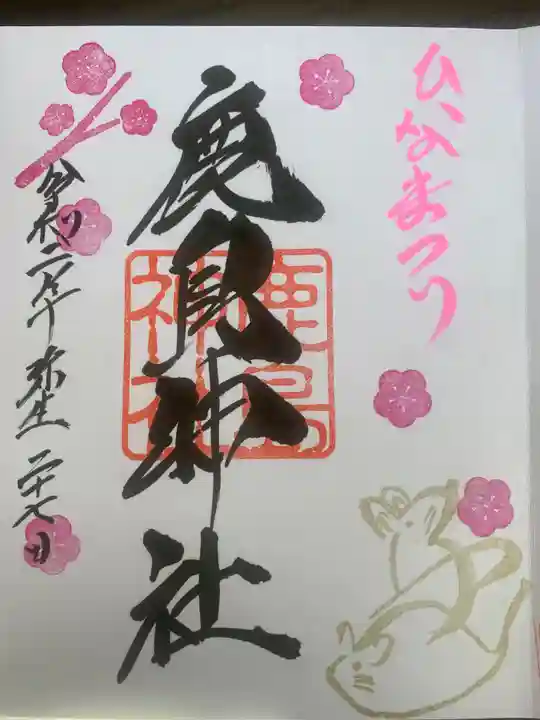 ひなまつり
鹿島神社
鹿島
神社
令和二年 弥生 二十七日